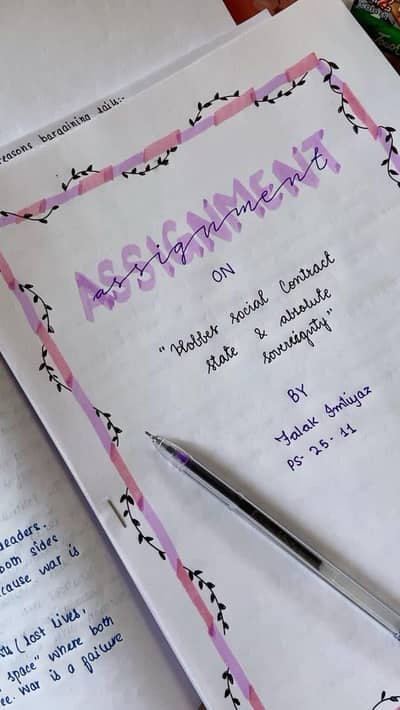 reasons bargaining fails:-
ASSIGNMENT
assignment
ON
"Hobbes social Contract
state & absolute
sovereignty"
BY
Falak Imtiyaz
PS-25-11
leaders.
both sides
cause war is
(Lost Lives,
space" where both
war is a failure